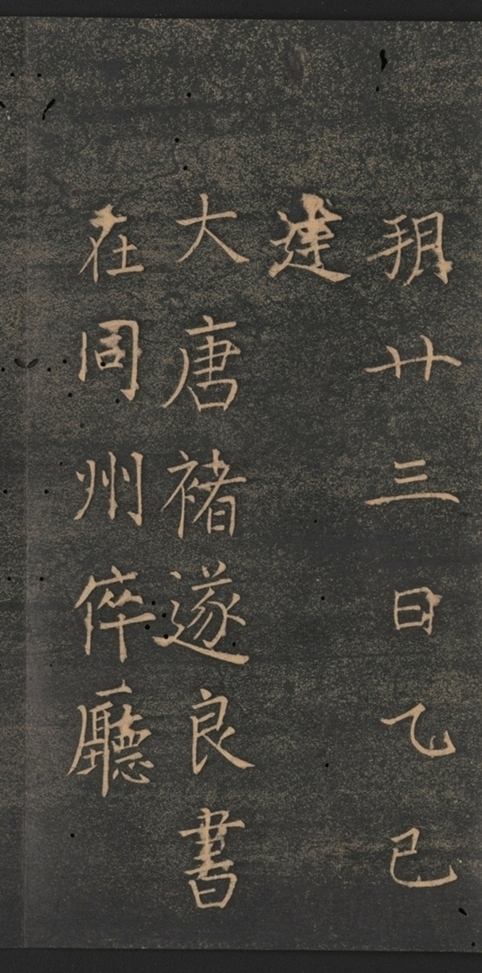 朔廿三日乙巳
建
大唐褚遂良書
在同州倅廳